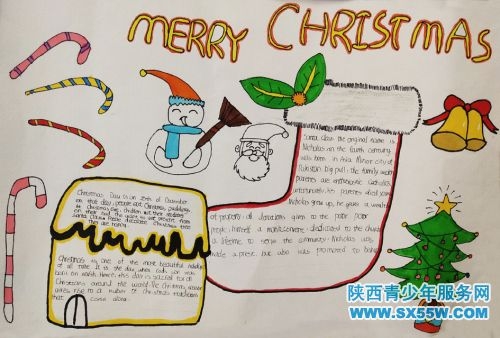 MERRY CHRISTMAS
Santa Claus the original name is
Nicholas in the fourth century
was born in Asia Minor city of
big pull, the family wealth
parents are enthusiastic catholics
unfortunately his parents died young
Nicholas grow up, he gave a wealth
of property all donations given to the poor poor
people, himself a monk dedicated to the church
a lifetime to serve the community. Nicholas was
made a priest but also was promoted to bishop
Christmas Day is on 25th of December
on that day people eat Christmas pudding,
Christmas children put their stockings
on their bed, she wants to get present from
Santa Claus. People decorate Christmas tree
they are happy.
Christmas is one of the most beautiful holiday
of all time. It is the day when
born on earth. Hence this day is special for all
Christians around the world. The Christmas
rise to a number of Christmas traditions
that come along.
陕西青少年服务网
www.sx55w.com